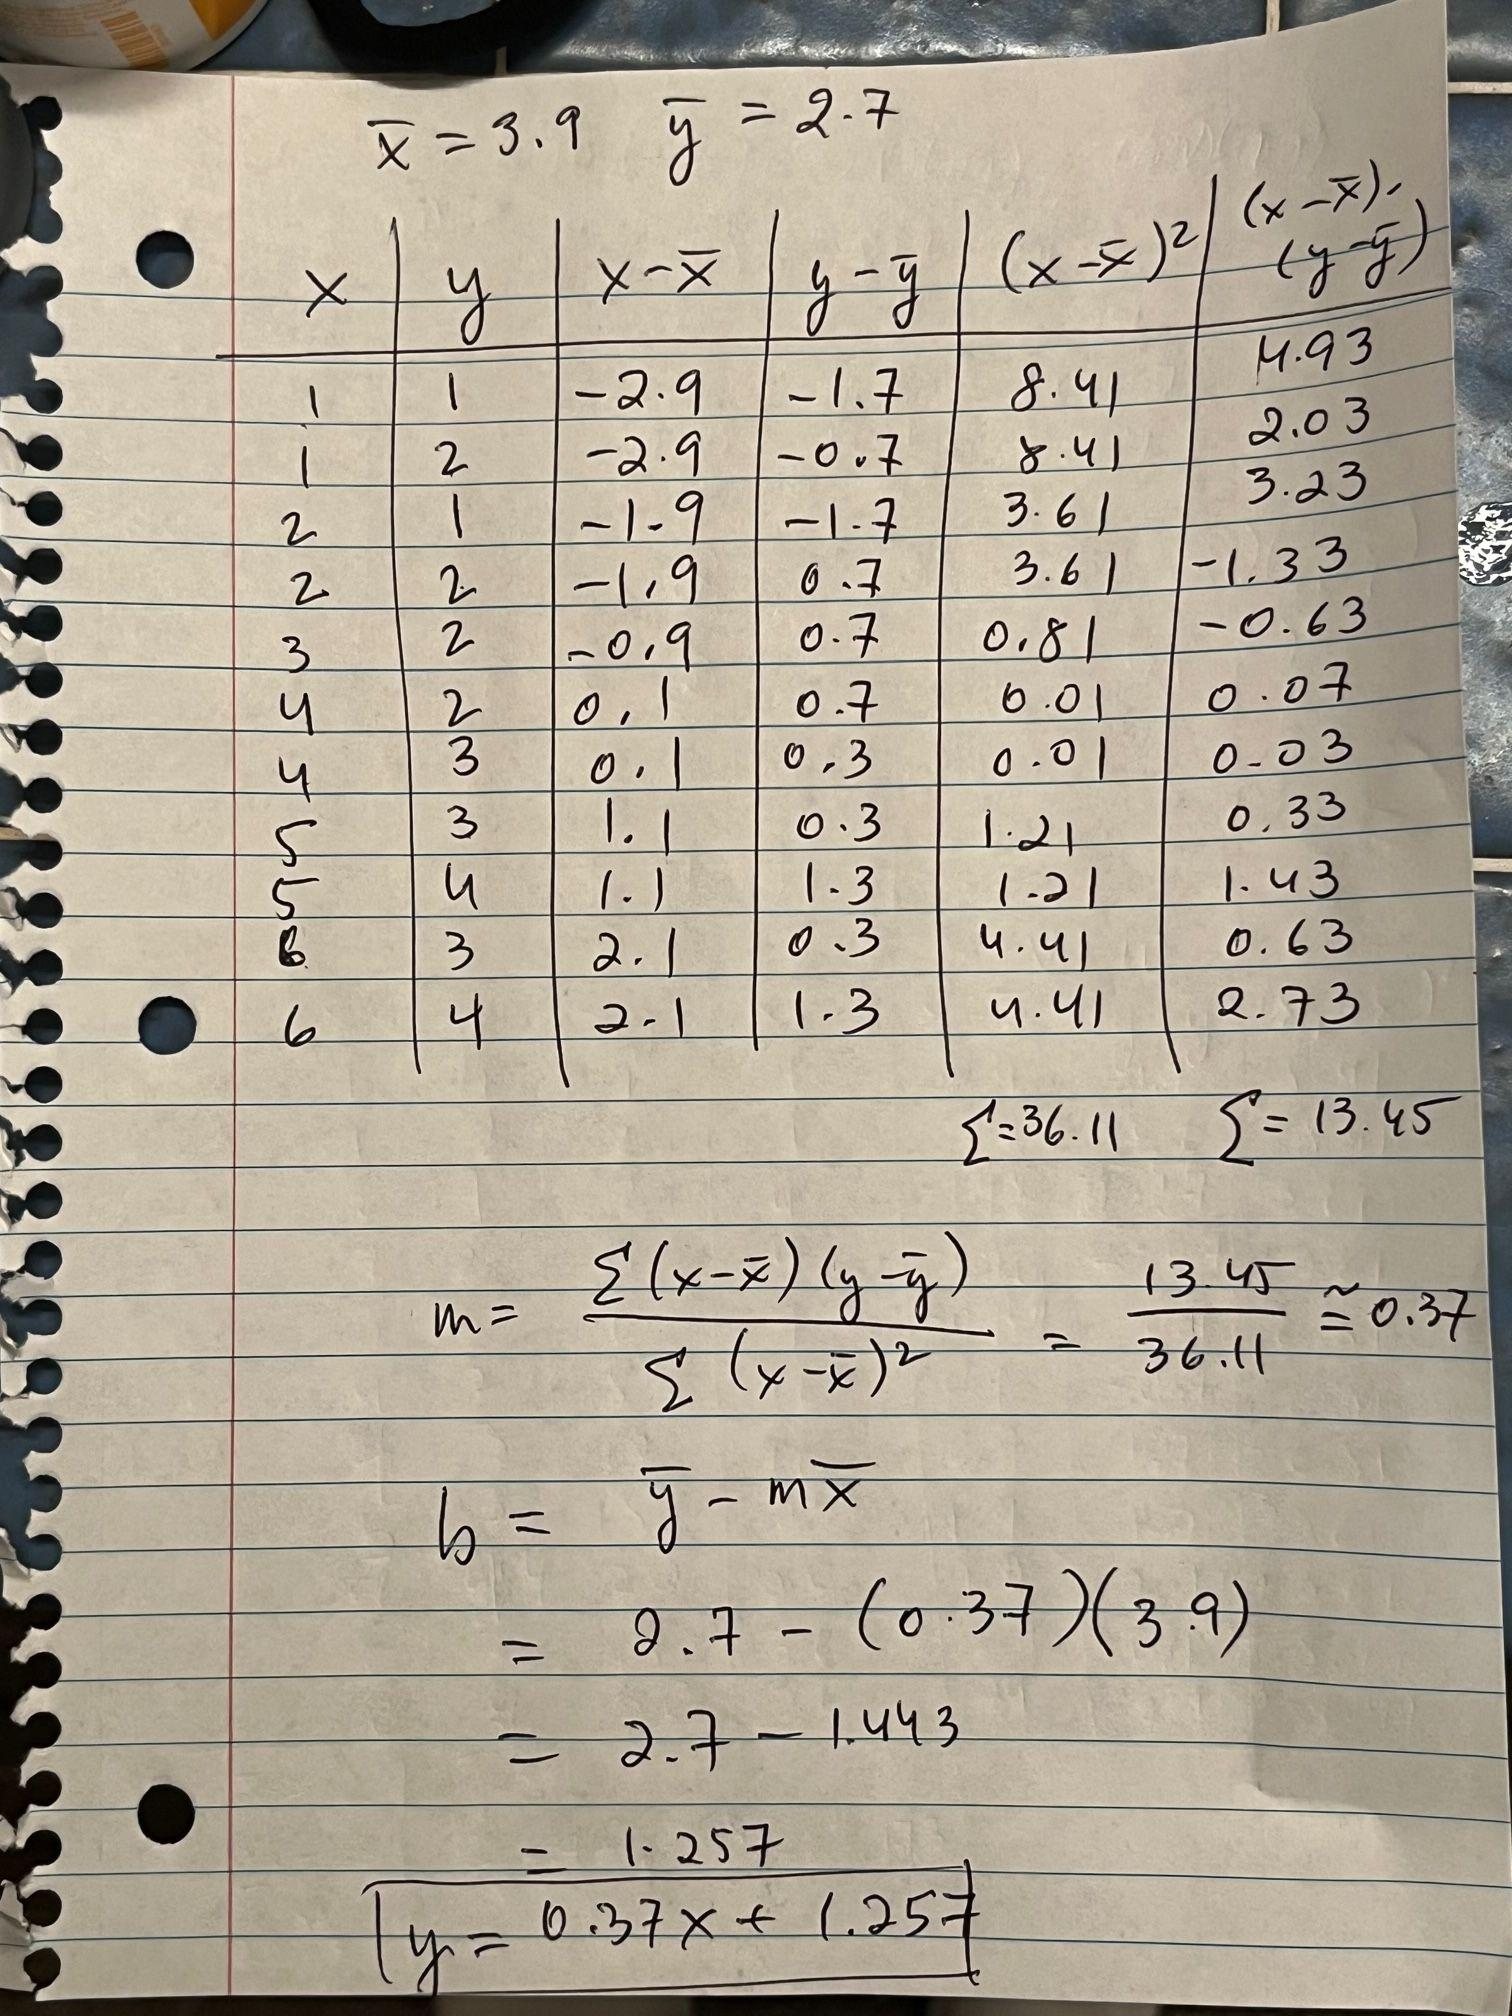 x̄ = 3.9 ȳ = 2.7
x | y | x-x̄ | y-ȳ | (x-x̄)² | (x-x̄)·(y-ȳ)
1 | 1 | -2.9 | -1.7 | 8.41 | 4.93
1 | 2 | -2.9 | -0.7 | 8.41 | 2.03
2 | 1 | -1.9 | -1.7 | 3.61 | 3.23
2 | 2 | -1.9 | 0.7 | 3.61 | -1.33
3 | 2 | -0.9 | 0.7 | 0.81 | -0.63
4 | 2 | 0.1 | 0.7 | 0.01 | 0.07
4 | 3 | 0.1 | 0.3 | 0.01 | 0.03
5 | 3 | 1.1 | 0.3 | 1.21 | 0.33
5 | 4 | 1.1 | 1.3 | 1.21 | 1.43
6 | 3 | 2.1 | 0.3 | 4.41 | 0.63
6 | 4 | 2.1 | 1.3 | 4.41 | 2.73
Σ=36.11 Σ=13.45
m = Σ(x-x̄)(y-ȳ) / Σ(x-x̄)² = 13.45 / 36.11 ≅ 0.37
b = ȳ - mx̄
= 2.7 - (0.37)(3.9)
= 2.7 - 1.443
= 1.257
y = 0.37x + 1.257